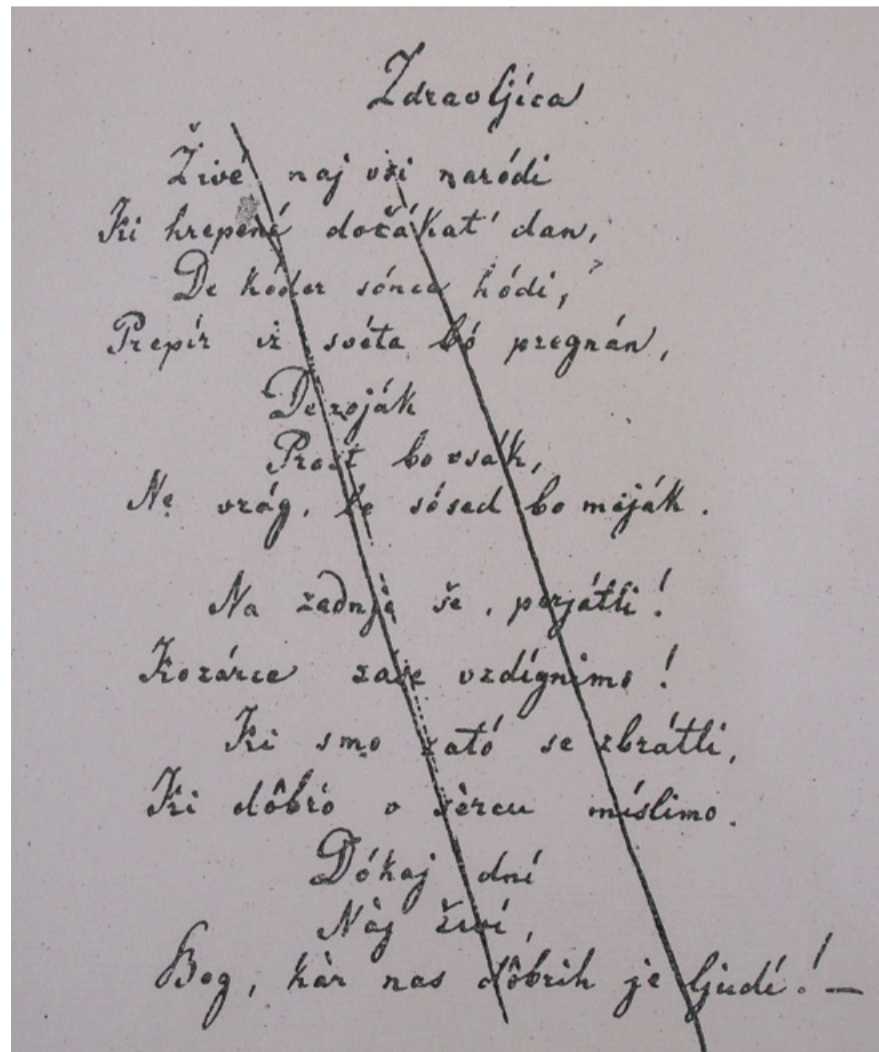 Zdravljíca
Živé naj vsi naródi
Ki hrepené dočákat' dan,
De kóder sónce hódi,
Prepír iz svéta bó pregnán,
De roják
Prost bo vsák,
Ne vrág, le sósed bo mèják.
Na zadnje še, perjátli!
Kozárce zase vzdígnimo!
Ki smo zató se zbrátli,
Ki dôbro v sèrcu míslimo.
Dókaj dní
Nàj živí,
Bog, kàr nas dôbrih je ljudí! —